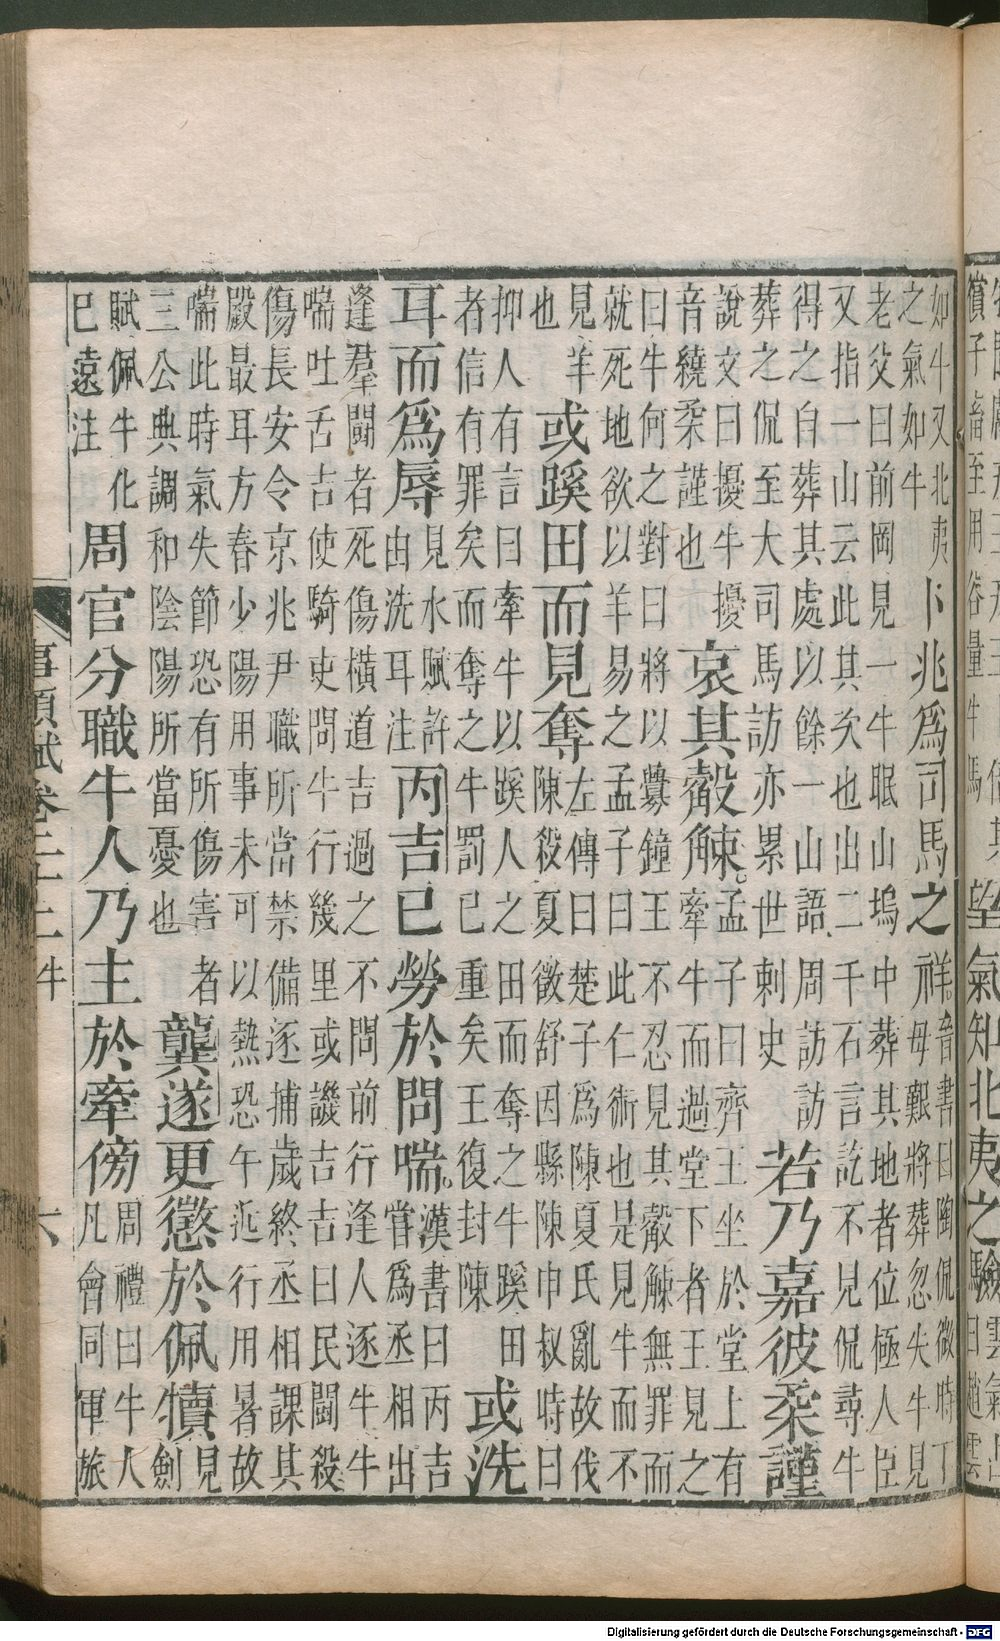 償子畜至用谷量牛馬
望氣知北夷之驗
如牛又北夷
之氣如牛
卜兆爲司馬之祥
音書曰陶侃微時丁
母艱將葬忽失牛見
老父曰前岡見一牛眠山塢中葬其地者位極人臣
又指一山云此其次也出二千石言訖不見侃尋牛
得之白葬其處以餘一山語周訪訪
葬之侃至大司馬訪亦累世刺史
若乃嘉彼柔謹
說文曰擾牛擾
音繞柔謹也
哀其觳觫
孟子曰齊王坐於堂上有
牽牛而過堂下者王見之
曰牛何之對曰將以釁鐘王不忍見其觳觫無罪而
就死地欲以羊易之孟子曰此仁術也是見牛而不
見羊
也
或蹊田而見奪
左傳曰楚子爲陳夏氏亂故伐
陳殺夏徵舒因縣陳申叔時曰
抑人有言曰牽牛以蹊人之田而奪之牛蹊田
者信有罪矣而奪之牛罰已重矣王復封陳
或洗
耳而爲辱
見水賦許
由洗耳注
丙吉已勞於問喘
漢書曰丙吉
嘗爲丞相出
逢羣鬭者死傷橫道吉過之不問前行逢人逐牛牛
喘吐舌吉使騎吏問牛行幾里或譏吉吉曰民鬭殺
傷長安令京兆尹職所當禁備逐捕歲終丞相課其
殿最耳方春少陽用事未可以熱恐午近行用暑故
喘此時氣失節恐有所傷害者
三公典調和陰陽所當憂也
龔遂更懲於佩犢
見
劍
賦佩牛化
已遠注
周官分職牛人乃主於牽傍
周禮曰牛人
凡會同軍旅
事類賦卷二十二 牛 六
Digitalisierung gefördert durch die Deutsche Forschungsgemeinschaft - DFG